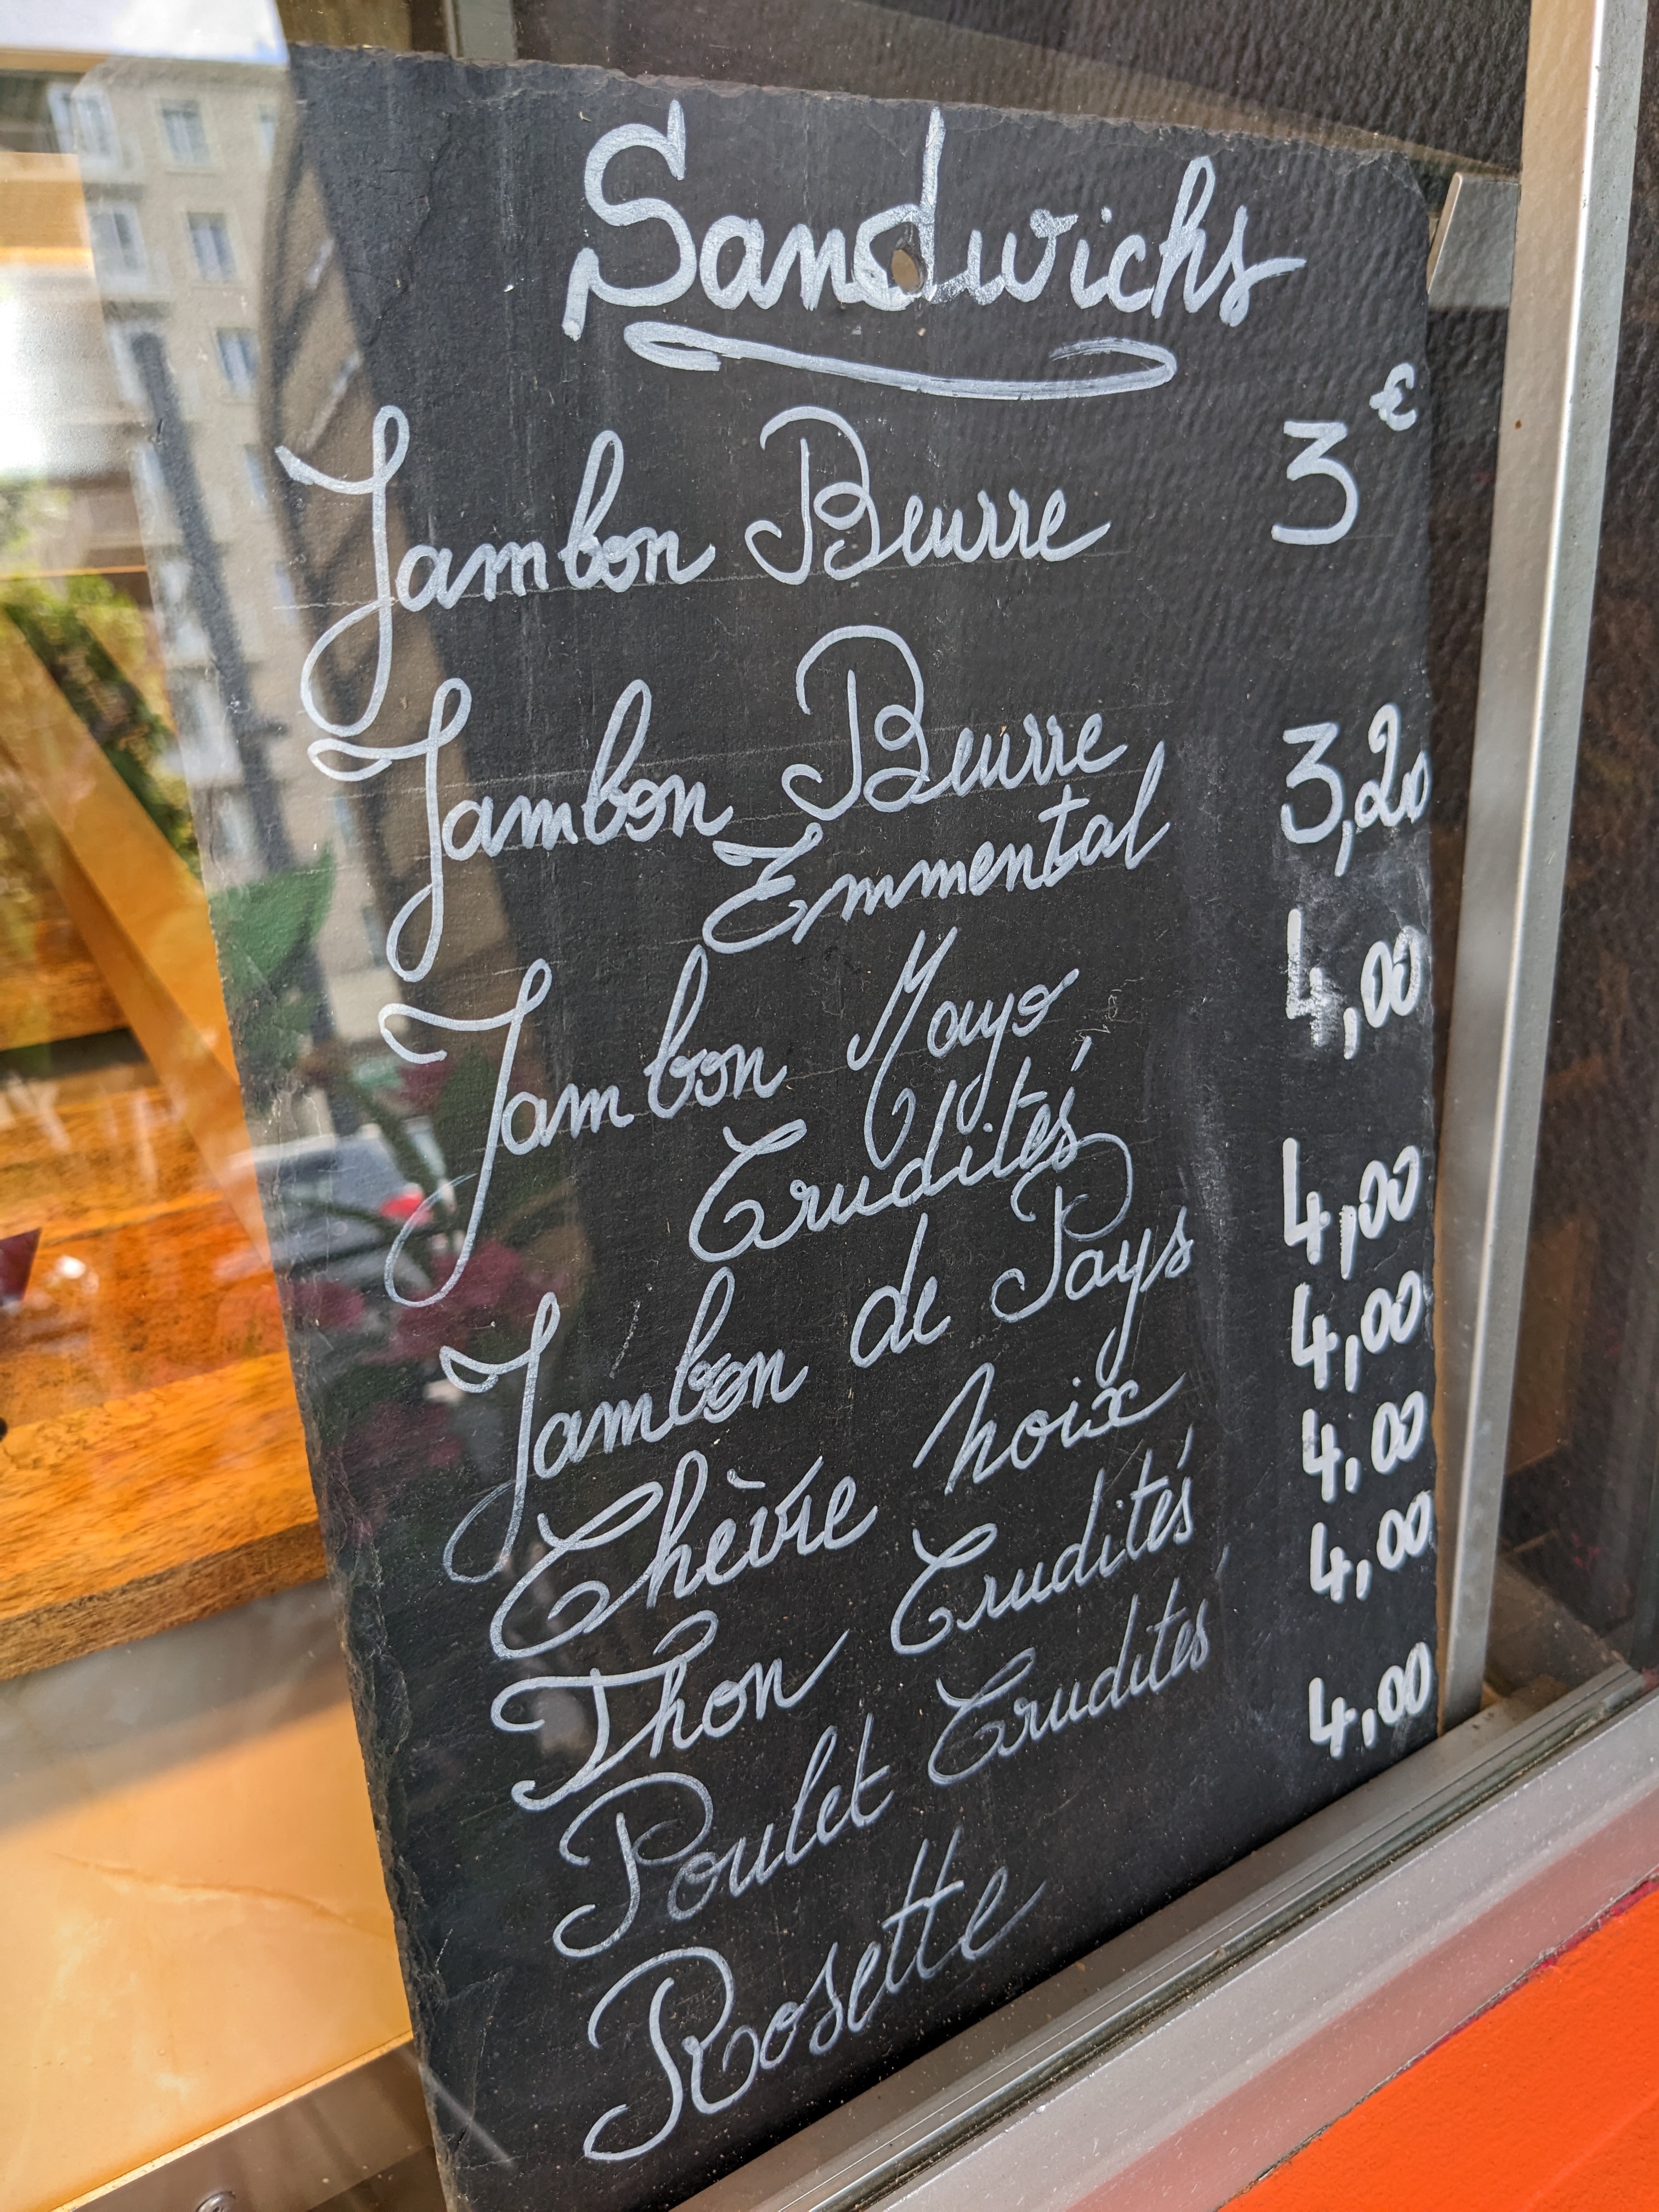 Sandwichs
Jambon Beurre 3€
Jambon Beurre 3,20
Emmental
Jambon Mayo 4,00
Crudités
Jambon de Pays 4,00
Chèvre noix 4,00
Thon Crudités 4,00
Poulet Crudités 4,00
Rosette 4,00